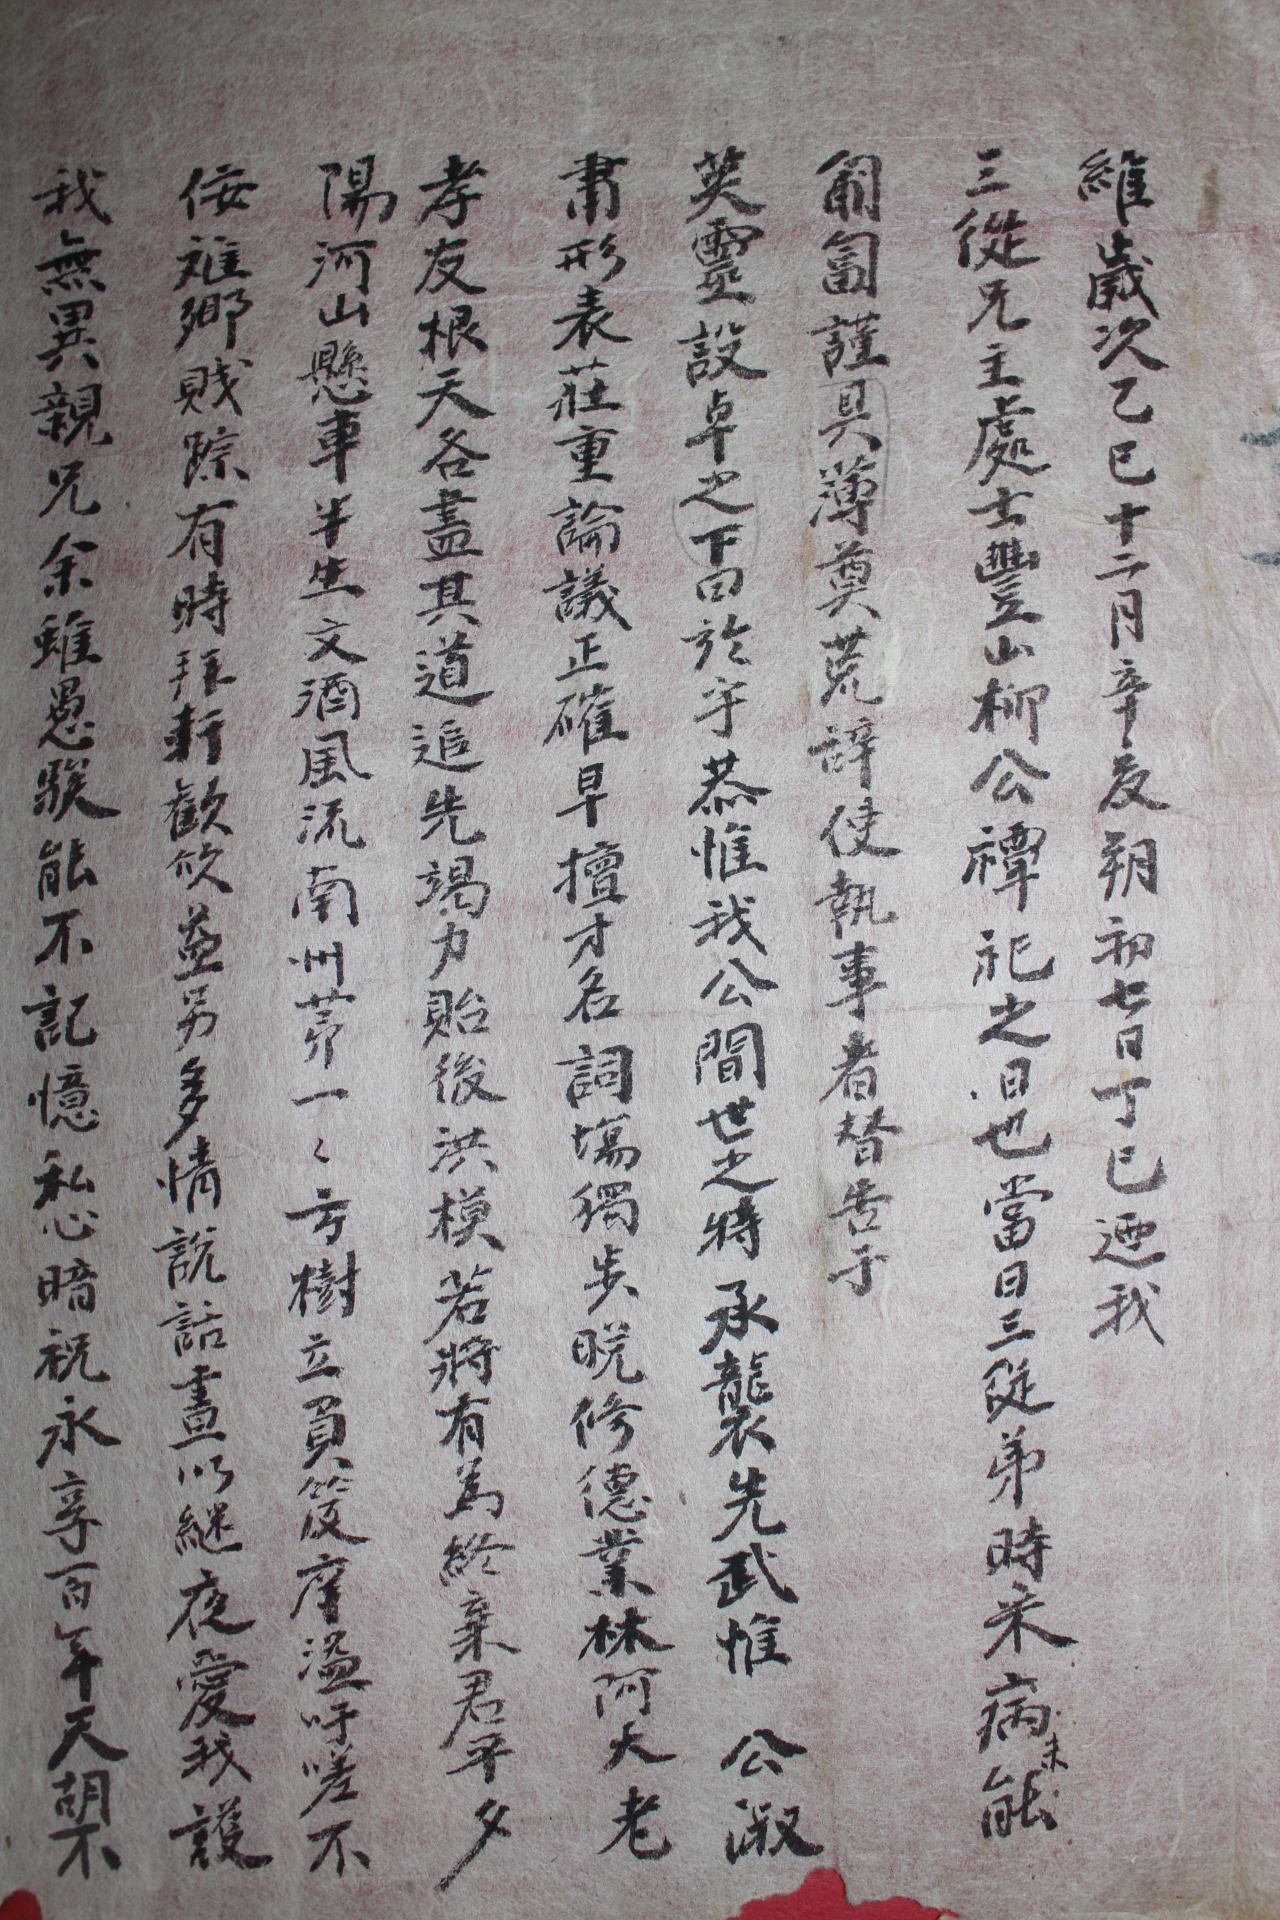 維歲次乙巳十二月辛亥朔初七日丁巳迺我
三從兄主處士豐山柳公禫祀之日也當日三從弟時釆病未能
匍匐謹具薄奠荒辞使執事者替告于
英靈設卓之下曰於乎恭惟我公間世之特承襲先武惟公淑
肅形表莊重論議正確早擅才名詞場獨步晩修德業林阿大老
孝友根天各盡其道追先竭力貽後洪模若將有為終棄君平夕
陽河山懸車半生文酒風流南州苐一々方樹立負笈庠溢吁嗟不
佞雖鄉賤踪有時拜軒歡欣益另多情說話晝以継夜愛我護
我無異親兄余雖愚騃能不記憶私心暗祝永享百年天胡不